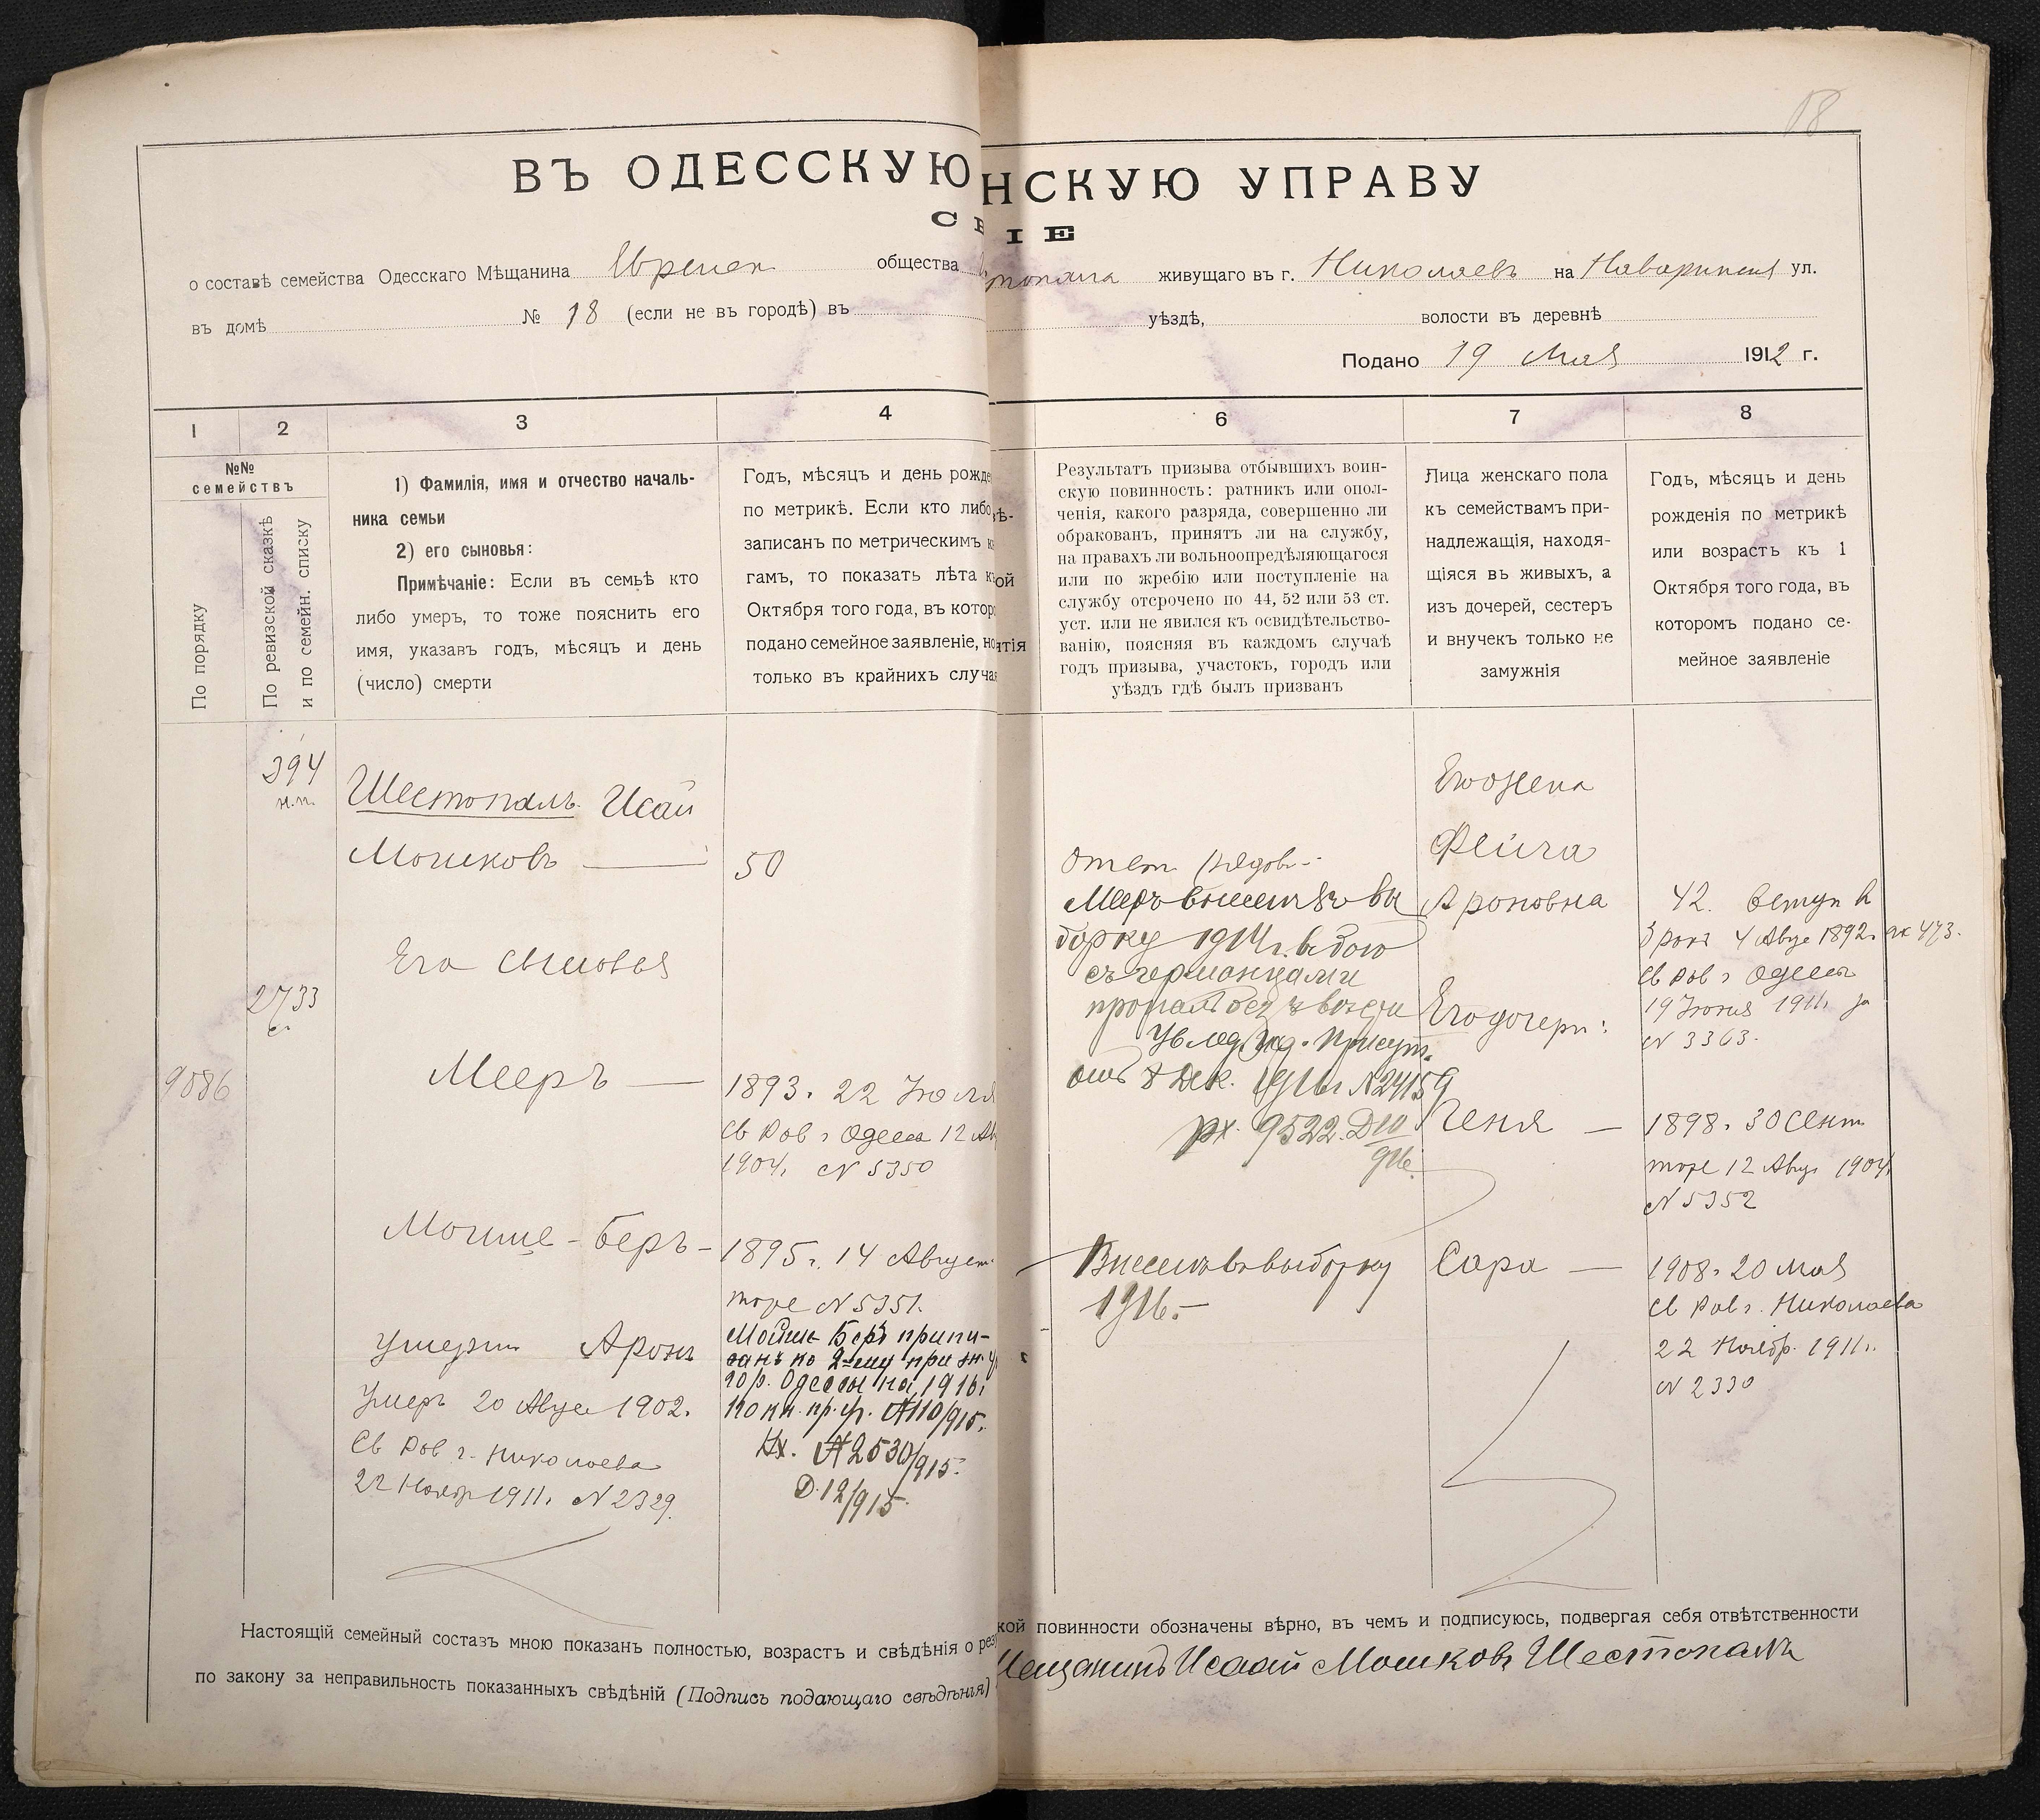 18
ВЪ ОДЕССКУЮ НСКУЮ УПРАВУ
С ІЕ
о составѣ семейства Одесскаго Мѣщанина Евреиск общества топала живущаго въ г. Николаевъ на Наваринск ул.
въ домѣ № 18 (если не въ городѣ) въ уѣздѣ, волости въ деревнѣ
Подано 19 Мая 1912 г.
1 2 3 4 6 7 8
№№
семействъ
По порядку
По ревизской сказкѣ
и по семейн. списку
1) Фамилія, имя и отчество началь-
ника семьи
2) его сыновья:
Примѣчаніе: Если въ семьѣ кто
либо умеръ, то тоже пояснить его
имя, указавъ годъ, мѣсяцъ и день
(число) смерти
Годъ, мѣсяцъ и день рожде
по метрикѣ. Если кто либо
записанъ по метрическимъ к
гамъ, то показать лѣта к
Октября того года, въ котор
подано семейное заявленіе, но
только въ крайнихъ случа
вѣ-
ой
ятія
Результатъ призыва отбывшихъ воин-
скую повинность: ратникъ или опол-
ченія, какого разряда, совершенно ли
обракованъ, принятъ ли на службу,
на правахъ ли вольноопредѣляющагося
или по жребію или поступленіе на
службу отсрочено по 44, 52 или 53 ст.
уст. или не явился къ освидѣтельство-
ванію, поясняя въ каждомъ случаѣ
годъ призыва, участокъ, городъ или
уѣздъ гдѣ былъ призванъ
Лица женскаго пола
къ семействамъ при-
надлежащія, находя-
щіяся въ живыхъ, а
изъ дочерей, сестеръ
и внучекъ только не
замужнія
Годъ, мѣсяцъ и день
рожденія по метрикѣ
или возрастъ къ 1
Октября того года, въ
которомъ подано се-
мейное заявленіе
394
н.п.
2733
с.
9086
Шестопалъ Исай
Мошковъ —
Его сыновья
Мееръ —
Мошше-Беръ-
умерш Аронъ
Умеръ 20 Авгу 1902.
Св Рав г. Николаева
22 Ноябр 1911. № 2329.
50
1893. 22 Іюля
Св Рав г Одессы 12 Ав
1904. № 5350
1895г. 14 Август
тоже № 5351.
Мошше Беръ припи-
санъ ко 2-му приз. у
гор. Одессы на 1916г
по кн. пр. уч. №110/915.
Вх. №2530/915.
Д.12/915.
отст.
Мееръ внесенъ въ вы
борку 1914г. въ бою
съ германцами
пропалъ безъ вѣсти
Увлед. Уѣзд. Присут.
отъ 8 Дек. 1916г №24159
вх. 9522. Д10
916.
Внесенъ въ выборку
1916.-
Его жена
Фейга
Ароновна
Его дочери:
Геня —
Сара —
42. вступ в
бракъ 4 Авгу 1892. ак 473.
Св Рав г Одессы
19 Іюня 1911г за
№ 3363.
1898г 30 Сент
тоже 12 Авгу 1904г
№ 5352
1908г 20 мая
Св Рав г. Николаева
22 Ноябр. 1911г.
№ 2330
Настоящій семейный составъ мною показанъ полностью, возрастъ и свѣдѣнія о рез кой повинности обозначены вѣрно, въ чемъ и подписуюсь, подвергая себя отвѣтственности
по закону за неправильность показанныхъ свѣдѣній (Подпись подающаго свѣдѣнія) Мещанинъ Исаай Мошковъ Шестопалъ